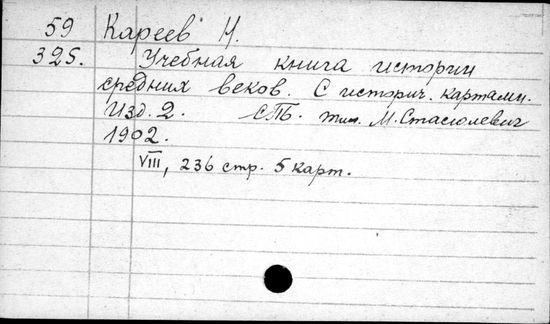 59 Кареев Н.
325. Учебная книга истории
средних веков. С историч. картами.
Изд. 2. СПБ. тип. М. Стасюлевич
1902.
VIII, 236 стр. 5 карт.